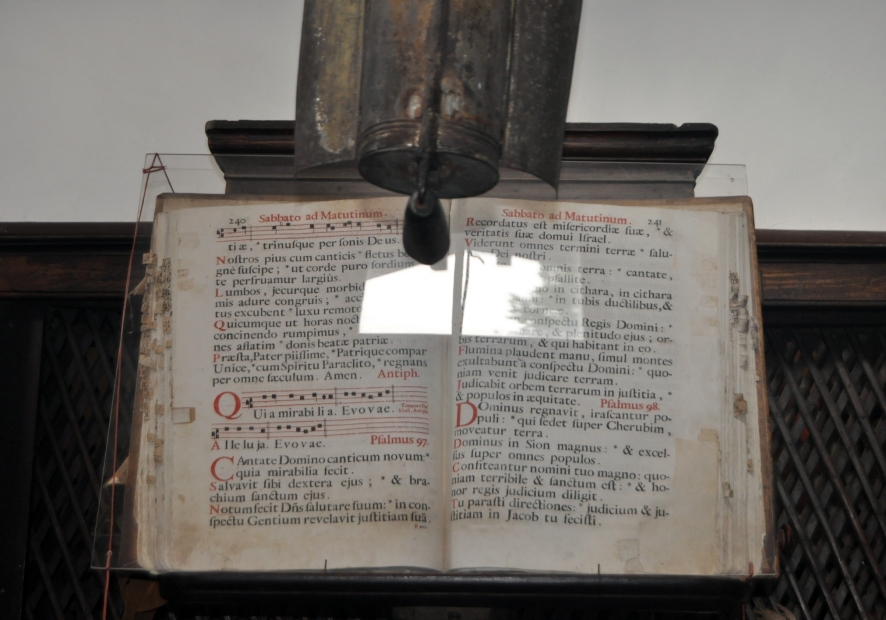 240 Sabbato ad Matutinum.
ti æ, * trinusque per sonis De us.
Nostros pius cum canticis * fletus
gnè suscipe; * ut corde puro sordium
te perfruamur largiùs.
Lumbos, jecurque morbid
mis adure congruis; *
tus excubent * luxu remoto
Quicumque ut horas noct
concinendo rumpimus, *
nes affatim * donis beatæ patriæ.
Præsta, Pater piissime, * Patrique compar
Unice, * cum Spiritu Paraclito, * regnans
per omne sæculum. Amen. Antiph.
Qui a mirabi li a. E v o v a e.
A lle lu ja. E v o v a e. Psalmus 97.
CAntate Domino canticum novum: *
quia mirabilia fecit.
Salvavit sibi dextera ejus; * & bra-
chium sanctum ejus.
Notum fecit Dñs salutare suum: * in con-
spectu Gentium revelavit justitiam suã.
Sabbato ad Matutinum. 241
Recordatus est misericordiæ suæ, * &
veritatis suæ domui Israel.
Viderunt omnes termini terræ * salu-
Dei nostri.
omnis terra: * cantate,
psallite.
in cithara, in cithara
* in tubis ductilibus, &
conspectu Regis Domini: *
& plenitudo ejus; or-
bis terrarum, & qui habitant in eo.
Flumina plaudent manu, simul montes
exultabunt à conspectu Domini: * quo-
niam venit judicare terram.
Judicabit orbem terrarum in justitia, *
& populos in æquitate. Psalmus 98.
DOminus regnavit, irascantur po-
puli: * qui sedet super Cherubim,
moveatur terra.
Dominus in Sion magnus: * & excel-
sus super omnes populos.
Confiteantur nomini tuo magno: quo-
niam terribile & sanctum est: * & ho-
nor regis judicium diligit.
Tu parasti directiones: * judicium & ju-
stitiam in Jacob tu fecisti.